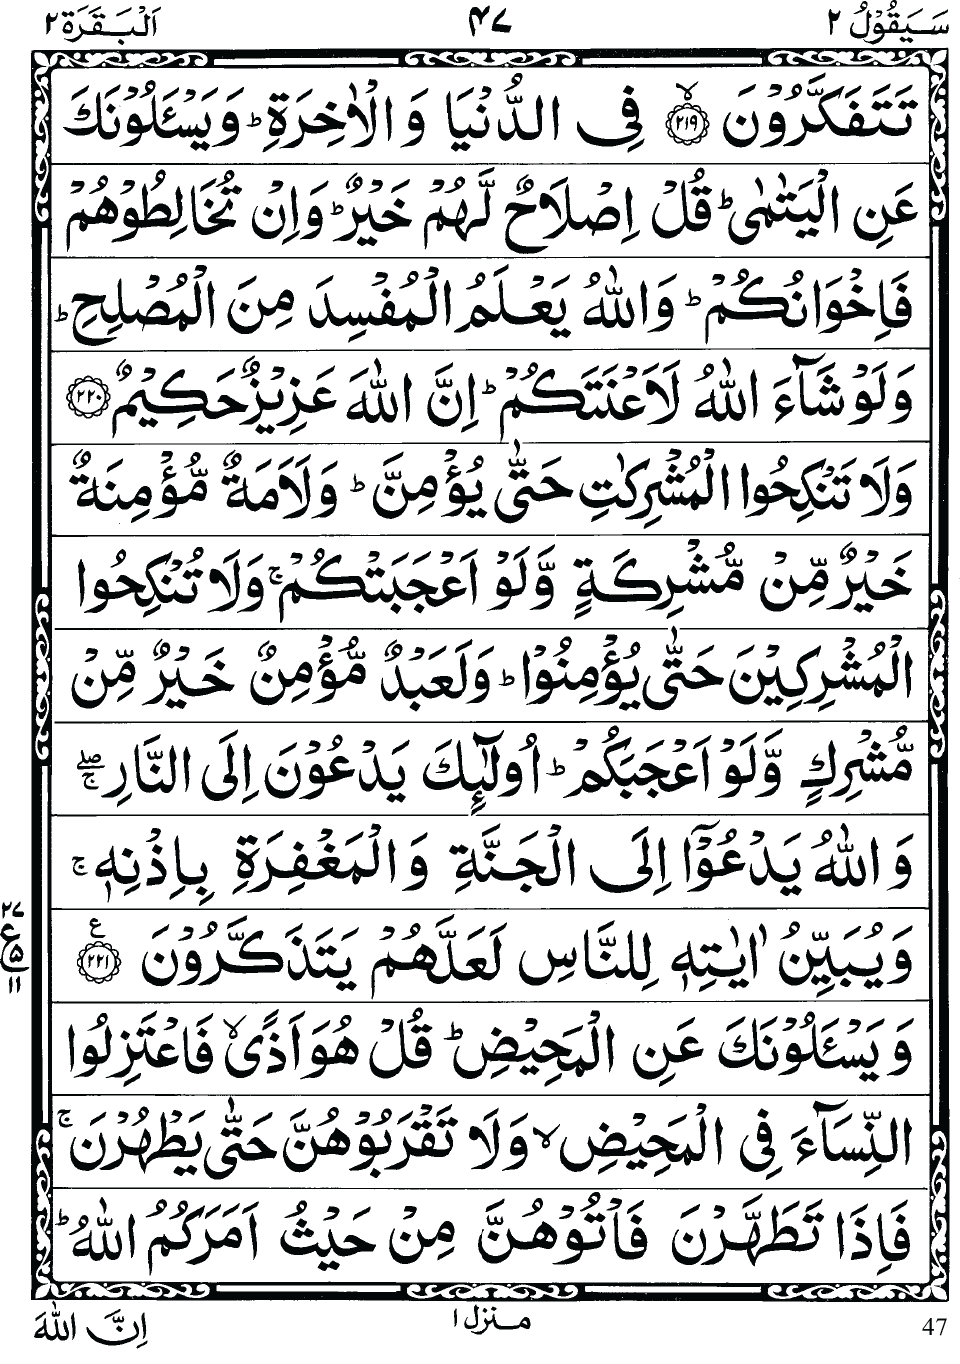 سَيَقُوْلُ ٢ ٤٧ اَلْبَقَرَة ٢
تَتَفَكَّرُوْنَ ۙ‏﴿٢١٩﴾ فِى الدُّنْيَا وَ الْاٰخِرَةِ ؕ وَيَسْـَٔلُوْنَكَ
عَنِ الْيَتٰمٰى ؕ قُلْ اِصْلَاحٌ لَّهُمْ خَيْرٌ ؕ وَاِنْ تُخَالِطُوْهُمْ
فَاِخْوَانُكُمْ ؕ وَاللّٰهُ يَعْلَمُ الْمُفْسِدَ مِنَ الْمُصْلِحِ ؕ
وَلَوْ شَآءَ اللّٰهُ لَاَعْنَتَكُمْ ؕ اِنَّ اللّٰهَ عَزِيْزٌ حَكِيْمٌ ﴿٢٢٠﴾
وَلَا تَنْكِحُوا الْمُشْرِكٰتِ حَتّٰى يُؤْمِنَّ ؕ وَلَاَمَةٌ مُّؤْمِنَةٌ
خَيْرٌ مِّنْ مُّشْرِكَةٍ وَّلَوْ اَعْجَبَتْكُمْ ۚ وَلَا تُنْكِحُوا
الْمُشْرِكِيْنَ حَتّٰى يُؤْمِنُوْا ؕ وَلَعَبْدٌ مُّؤْمِنٌ خَيْرٌ مِّنْ
مُّشْرِكٍ وَّلَوْ اَعْجَبَكُمْ ؕ اُولٰٓئِكَ يَدْعُوْنَ اِلَى النَّارِ ۖۚ
وَاللّٰهُ يَدْعُوْٓا اِلَى الْجَنَّةِ وَالْمَغْفِرَةِ بِاِذْنِهٖ ۚ
وَيُبَيِّنُ اٰيٰتِهٖ لِلنَّاسِ لَعَلَّهُمْ يَتَذَكَّرُوْنَ ﴿٢٢١﴾ ع
٢٧
ع
٥
١١
وَيَسْـَٔلُوْنَكَ عَنِ الْمَحِيْضِ ؕ قُلْ هُوَ اَذًىۙ فَاعْتَزِلُوا
النِّسَآءَ فِى الْمَحِيْضِ ۙ وَلَا تَقْرَبُوْهُنَّ حَتّٰى يَطْهُرْنَ ۚ
فَاِذَا تَطَهَّرْنَ فَاْتُوْهُنَّ مِنْ حَيْثُ اَمَرَكُمُ اللّٰهُ ؕ
47 منزل ١ اِنَّ اللّٰهَ